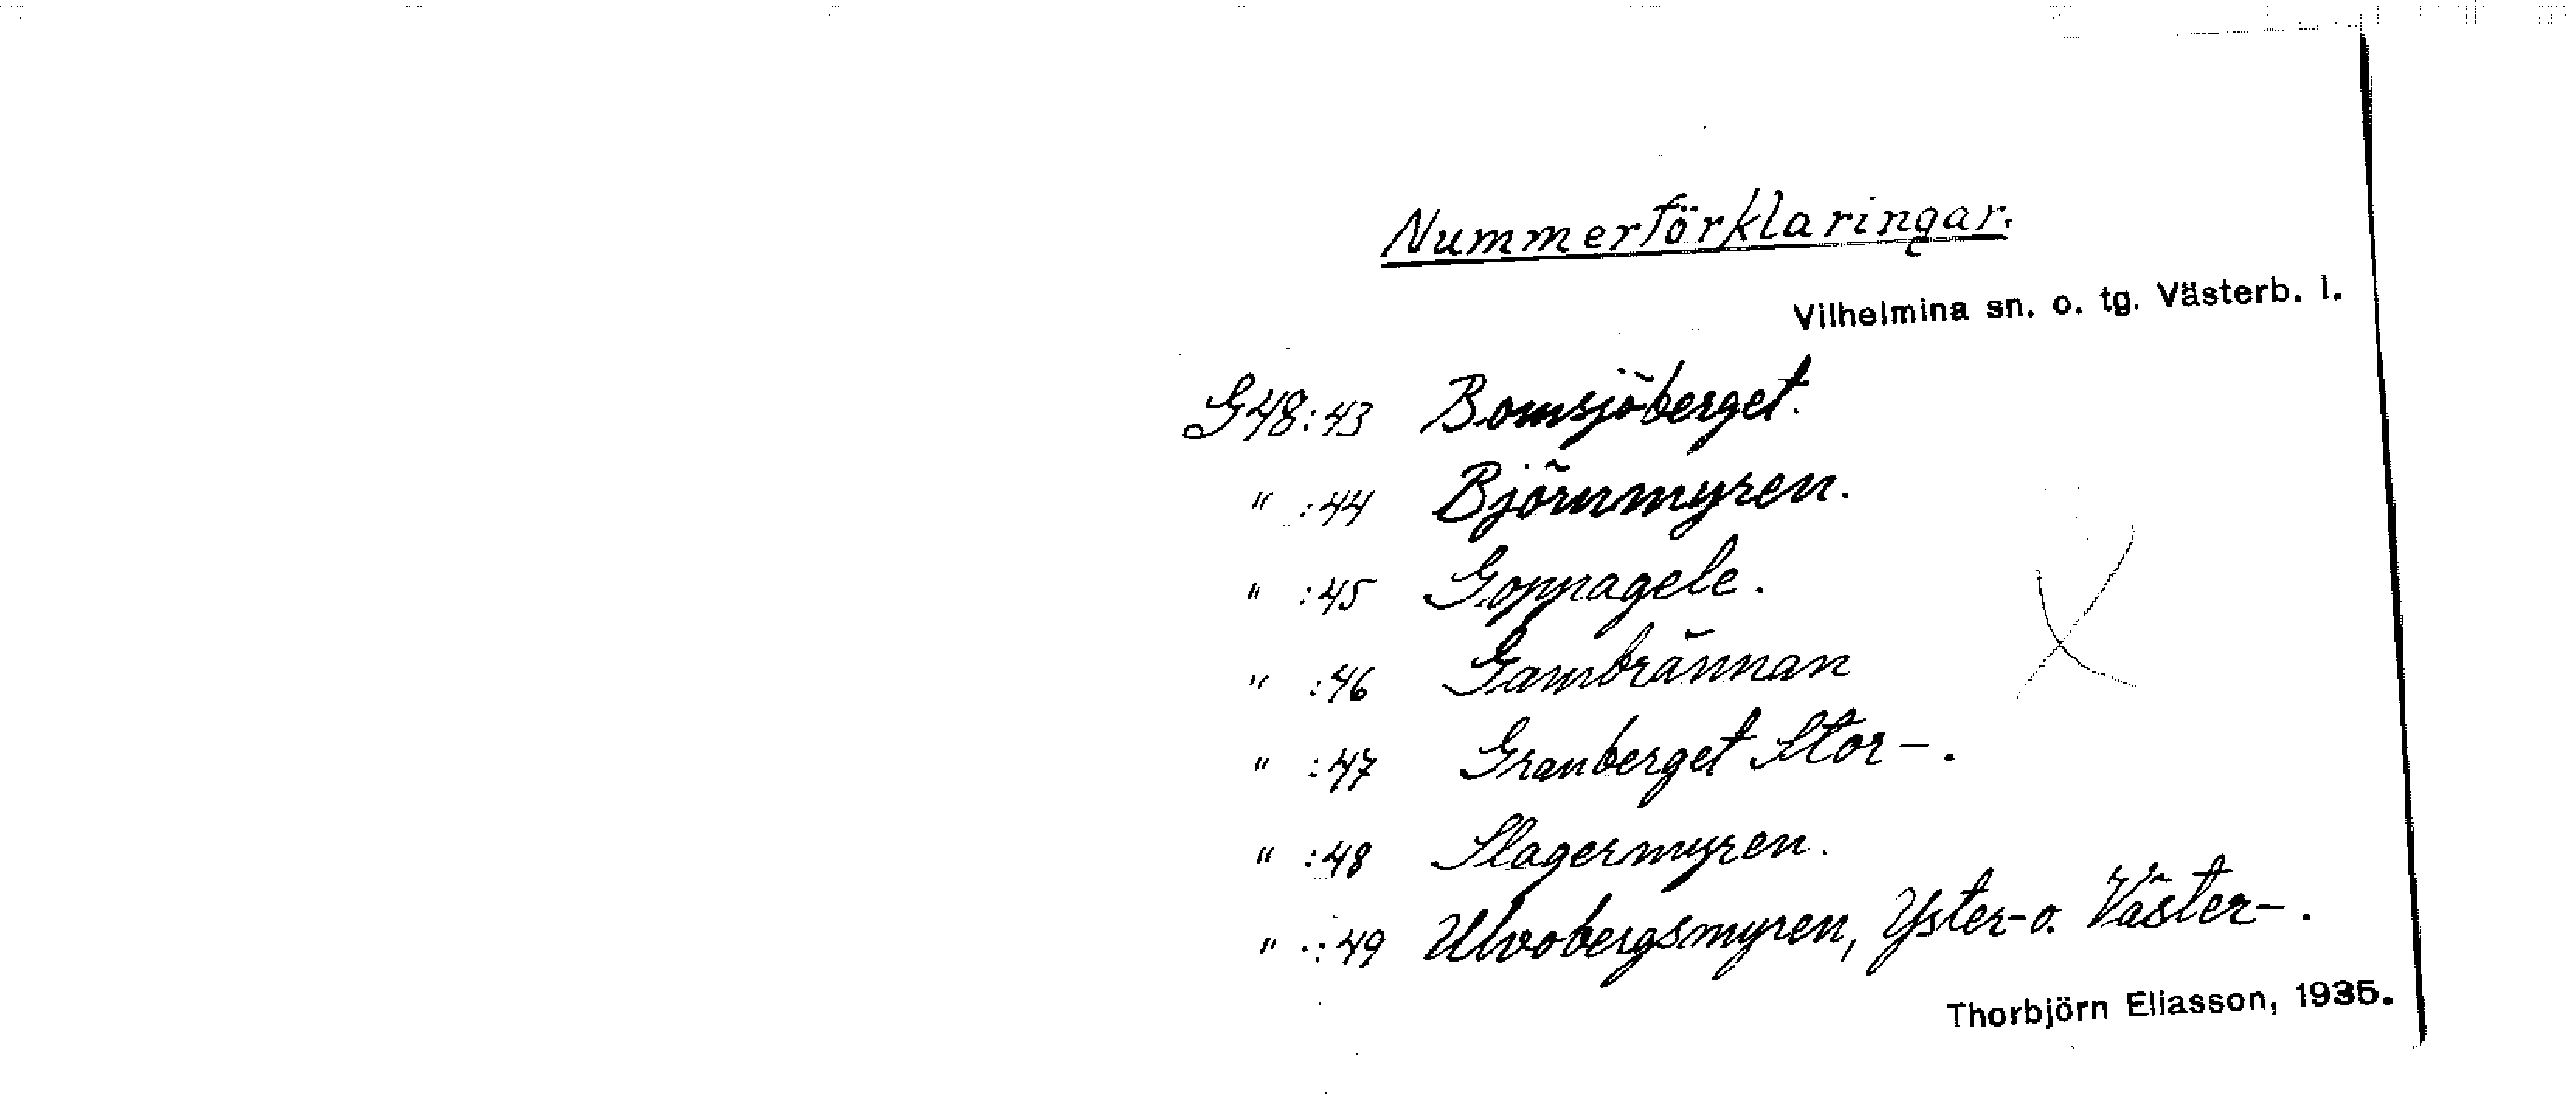 Nummerförklaringar.
Vilhelmina sn. o. tg. Västerb. l.
G48:43 Bomsjöberget.
" :44 Björnmyren.
" :45 Goppagele.
" :46 Gambrännan
" :47 Granberget Stor-.
" :48 Slagermyren.
" :49 Ulvobergsmyren, Yster- o. Väster-.
Thorbjörn Eliasson, 1935.